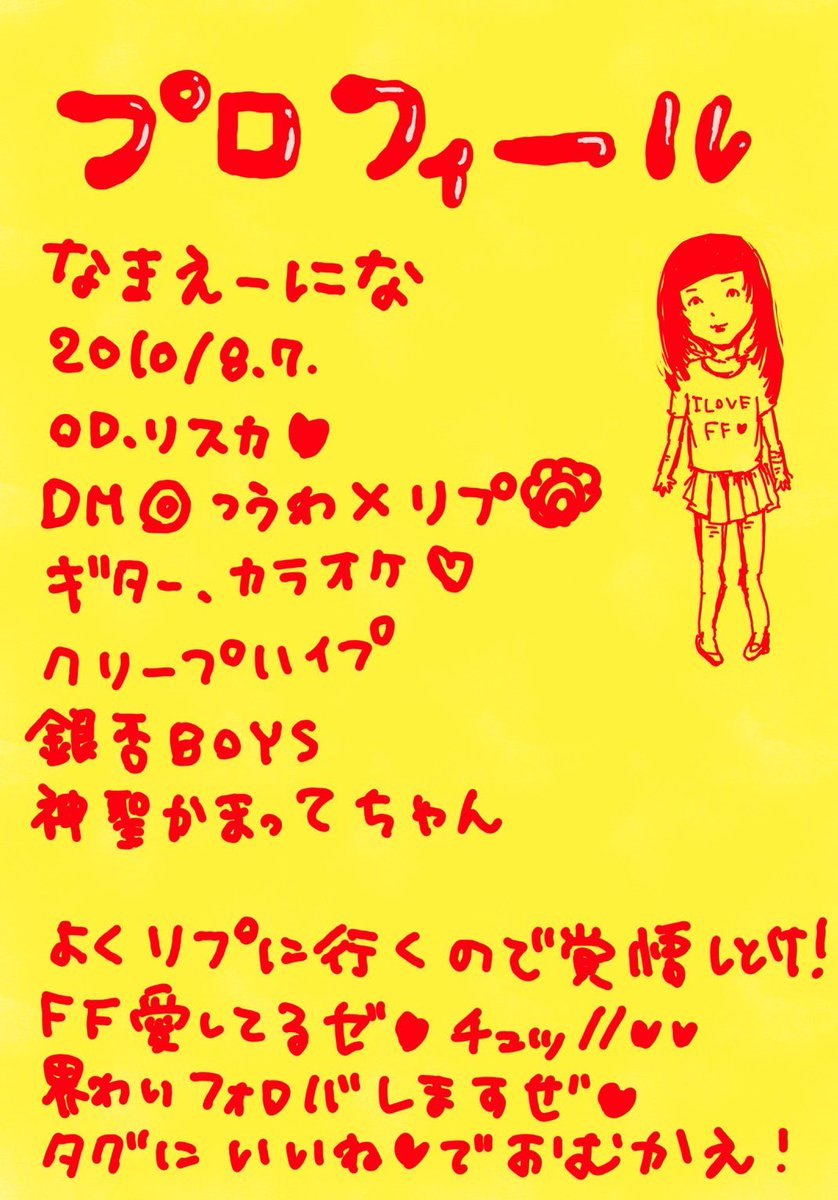 プロフィール
なまえーにな
2010/8.7.
OD、リスカ♥
DM◎つうわ×リプ💮
ギター、カラオケ♡
クリープハイプ
I LOVE
FF♥
銀杏BOYS
神聖かまってちゃん
よくリプに行くので覚悟しとけ!
FF愛してるぜ♥チュッ//♥♥
界わいフォロバしますぜ♥
タグにいいね♥でおむかえ!